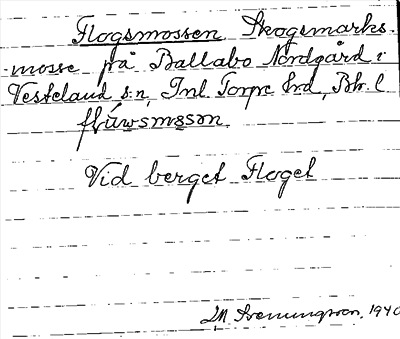 Flogsmossen Skogsmarks-
mosse på Ballabo Nordgård i
Vesteland s:n, Inl. Torpe Hrd, Bh. l
flúwsmɷsɷn
Vid berget Floget
IM. Svenningsson, 1940